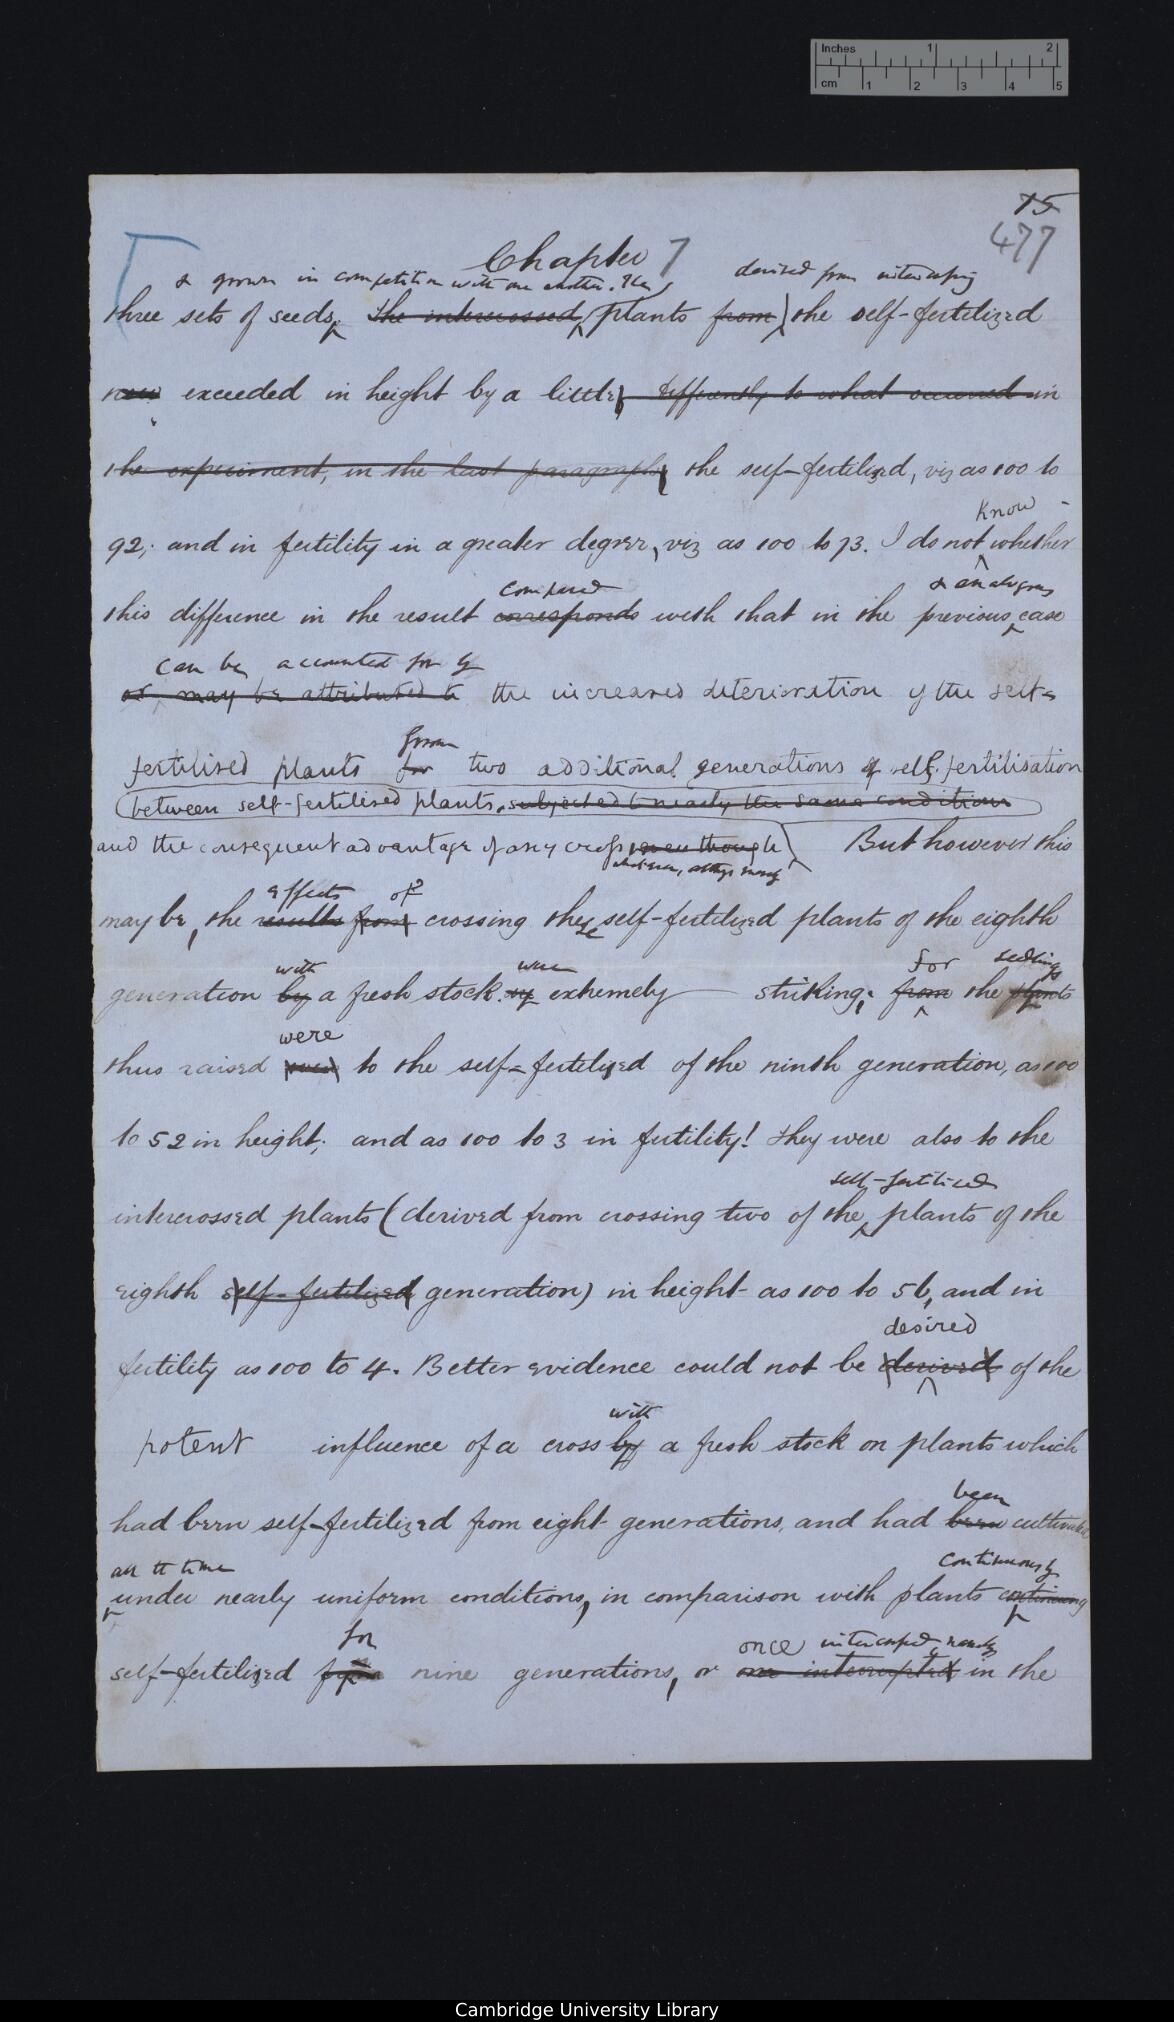 Inches 1 2
cm 1 2 3 4 5
75
477
Chapter 7
& grown in competition with one another. The derived from intercrossing
three sets of seeds, The intercrossed, plants from the self-fertilized
now exceeded in height by a little, differently to what occurred in
the experiment, in the last paragraph, the self-fertilized, viz as 100 to
know
92; and in fertility in a greater degree, viz as 100 to 73. I do not whether
compared & analogous
this difference in the result corresponds with that in the previous case
can be accounted for by
or may be attributed to the increased deterioration of the self-
from
fertilised plants for two additional generations of self-fertilisation
between self-fertilised plants, subjected to nearly the same conditions
and the consequent advantage of any cross, even though But however this
effects of
may be, the results from crossing these self-fertilized plants of the eighth
with were for seedlings
generation by a fresh stock. extremely striking; from the plants
were
thus raised to the self-fertilized of the ninth generation, as 100
to 52 in height; and as 100 to 3 in fertility! They were also to the
self-fertilised
intercrossed plants (derived from crossing two of the plants of the
eighth self-fertilized generation) in height as 100 to 56, and in
desired
fertility as 100 to 4. Better evidence could not be derived of the
with
potent influence of a cross by a fresh stock on plants which
been
had been self-fertilized from eight generations, and had been cultivated
all the time continuously
under nearly uniform conditions, in comparison with plants continuing
for
self-fertilized from nine generations, or
once intercrossed, namely
one interrupted in the
Cambridge University Library